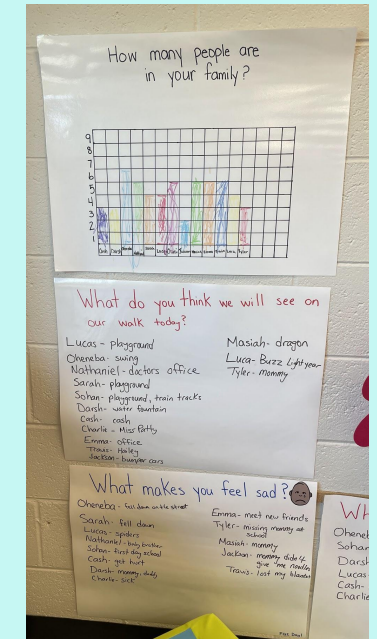 How many people are
in your family?
9
8
7
6
5
4
3
2
1
What do you think we will see on
our walk today?
Lucas - playground
Oheneba - swing
Nathaniel - doctors office
Sarah - playground
Sohan - playground, train tracks
Darsh - water fountain
Cash - cash
Charlie - Miss Patty
Emma - office
Travis - Hailey
Jackson - bumper cars
Masiah - dragon
Luca - Buzz Lightyear
Tyler - mommy
What makes you feel sad?
Oheneba - fall down on the street
Sarah - fell down
Lucas - spiders
Nathaniel - baby brother
Sohan - first day school
Cash - get hurt
Darsh - mommy, daddy
Charlie - sick
Emma - meet new friends
Tyler - missing mommy at
school
Masiah - mommy
Jackson - mommy didn't
give me noodles
Travis - lost my blanket
Wh
Oheneb
Sohan
Darsh
Lucas
Cash -
Charlie